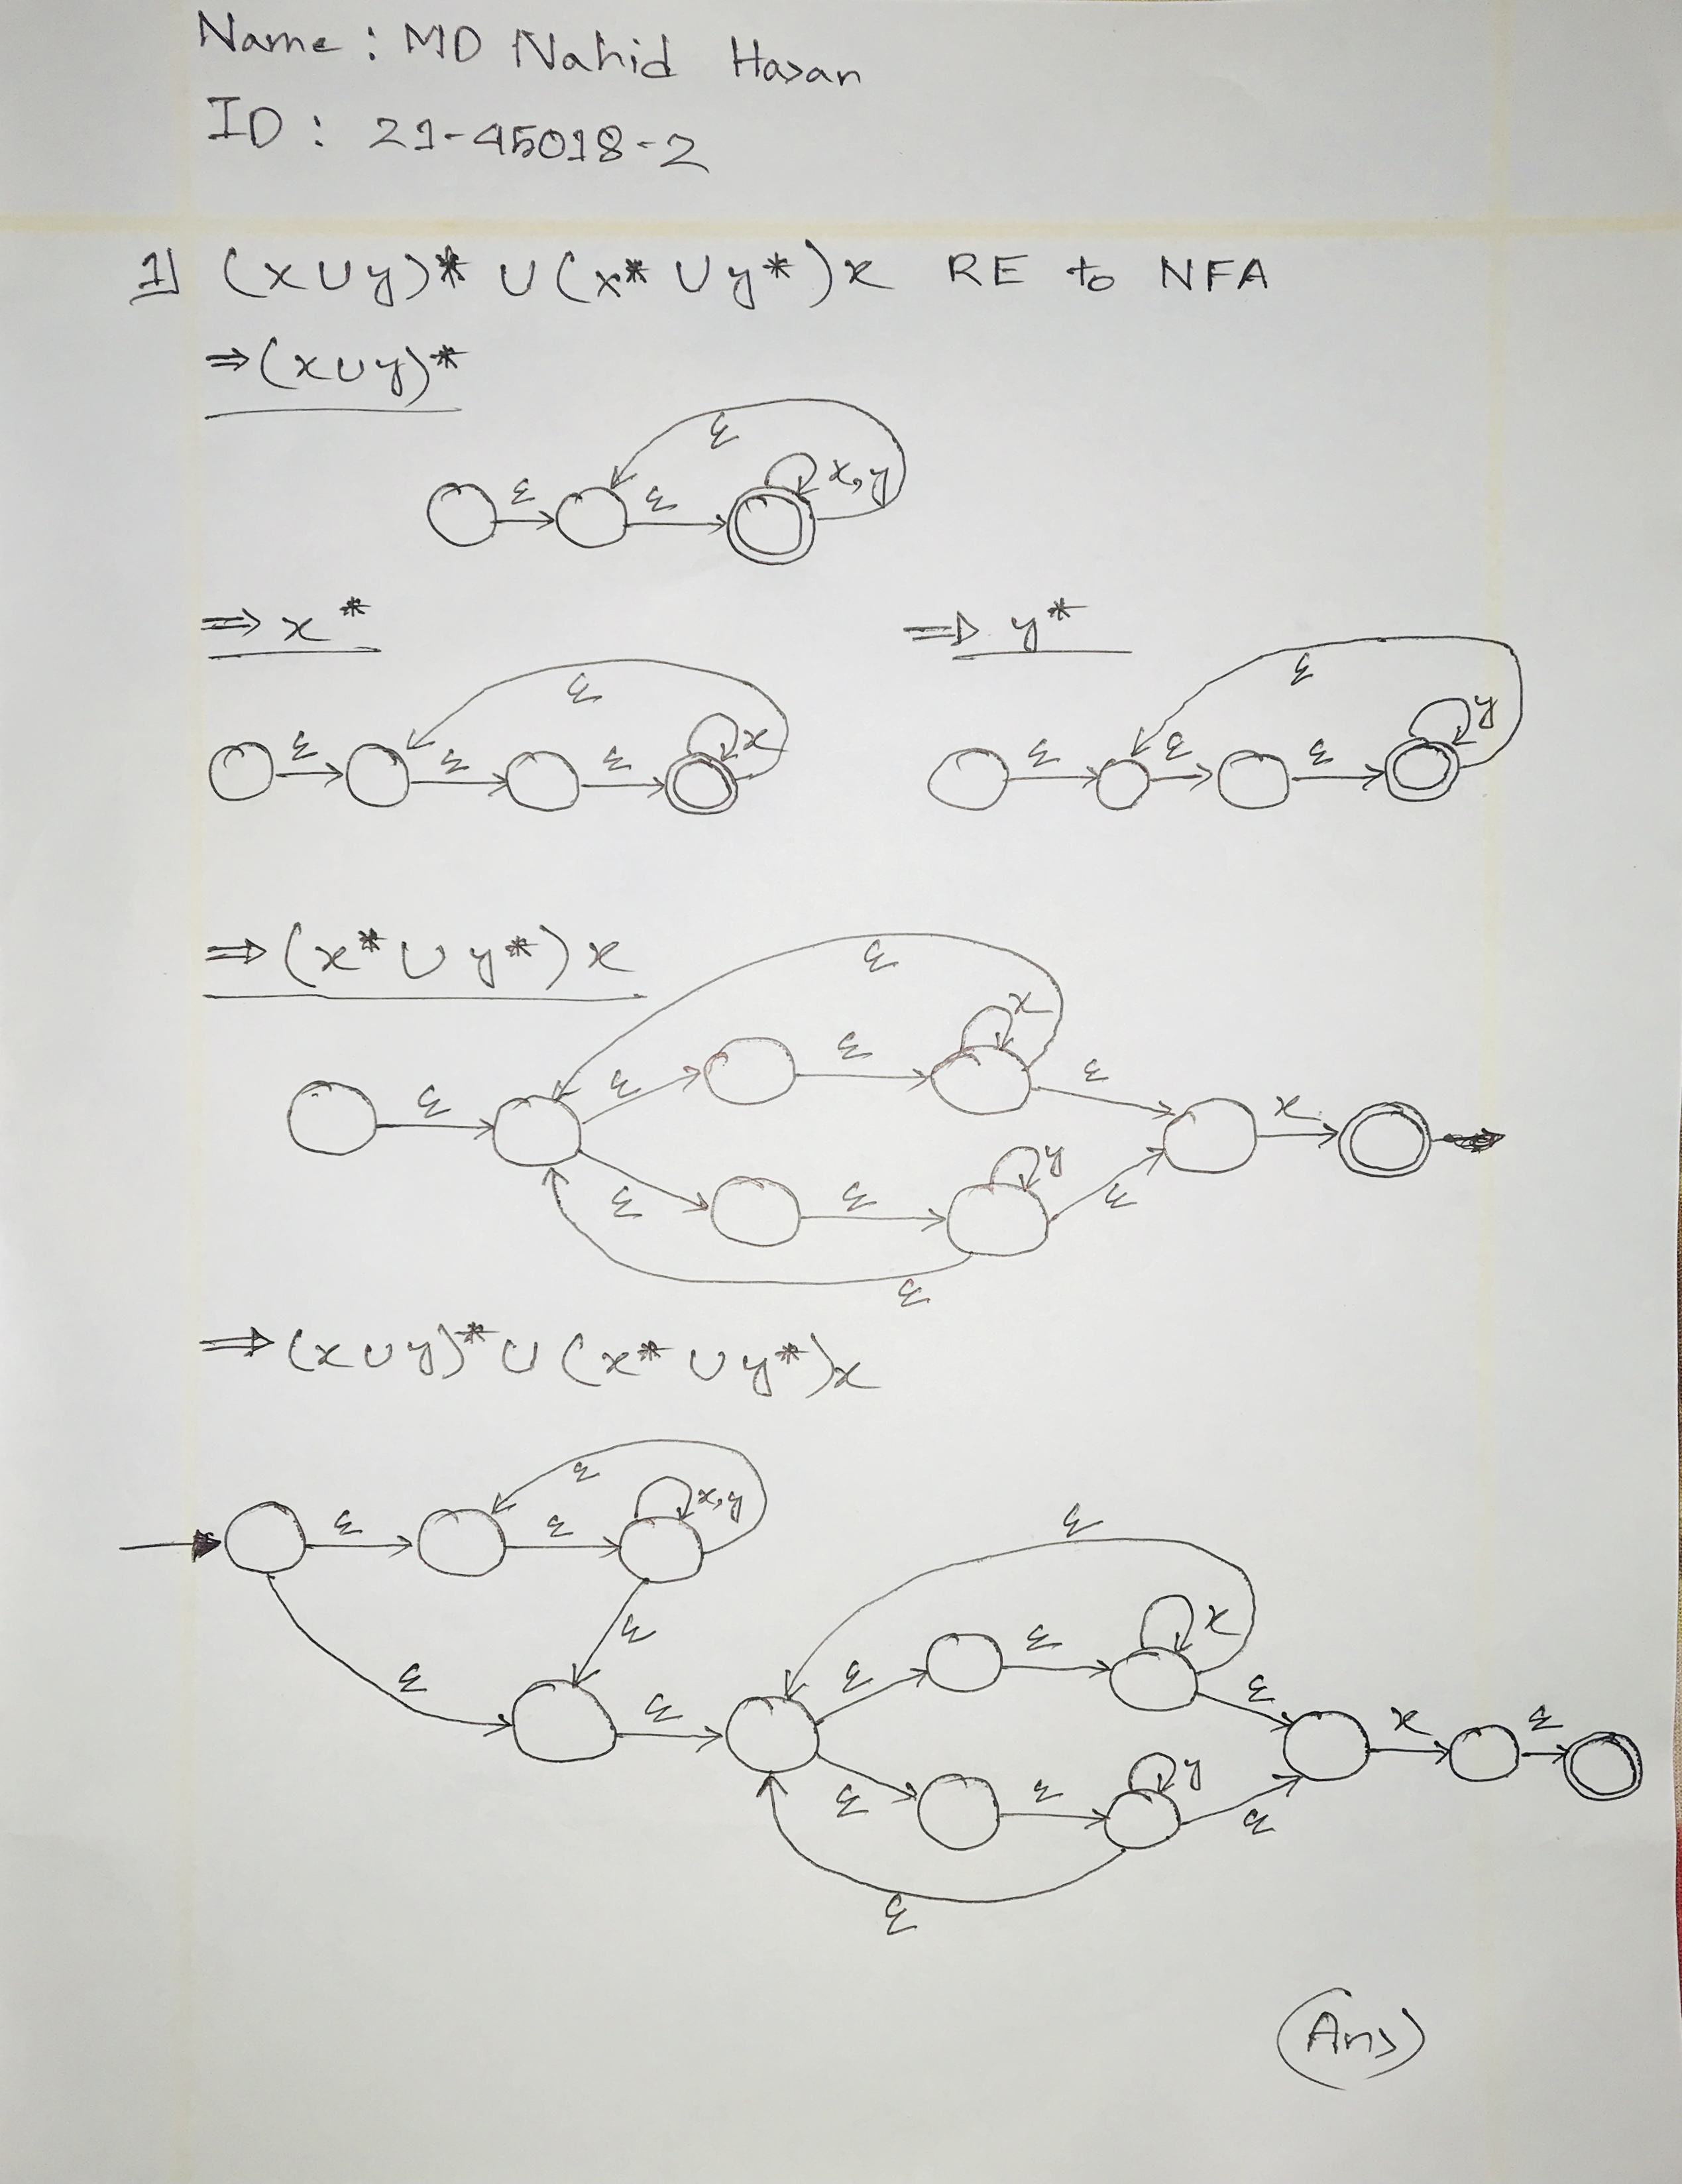 Name : MD Nahid Hasan
ID : 21-45018-2
1) (x∪y)* ∪ (x* ∪ y*)x RE to NFA
⇒ (x∪y)*
ε
ε ε x,y
⇒ x* ⇒ y*
ε ε
ε ε ε x ε ε ε y
⇒ (x* ∪ y*) x
ε
x
ε ε ε ε x
y
ε ε ε
ε
⇒ (x∪y)* ∪ (x* ∪ y*)x
ε
ε ε x,y
ε
ε x
ε ε ε
ε ε ε x ε
y
ε ε ε
ε
(Ans)